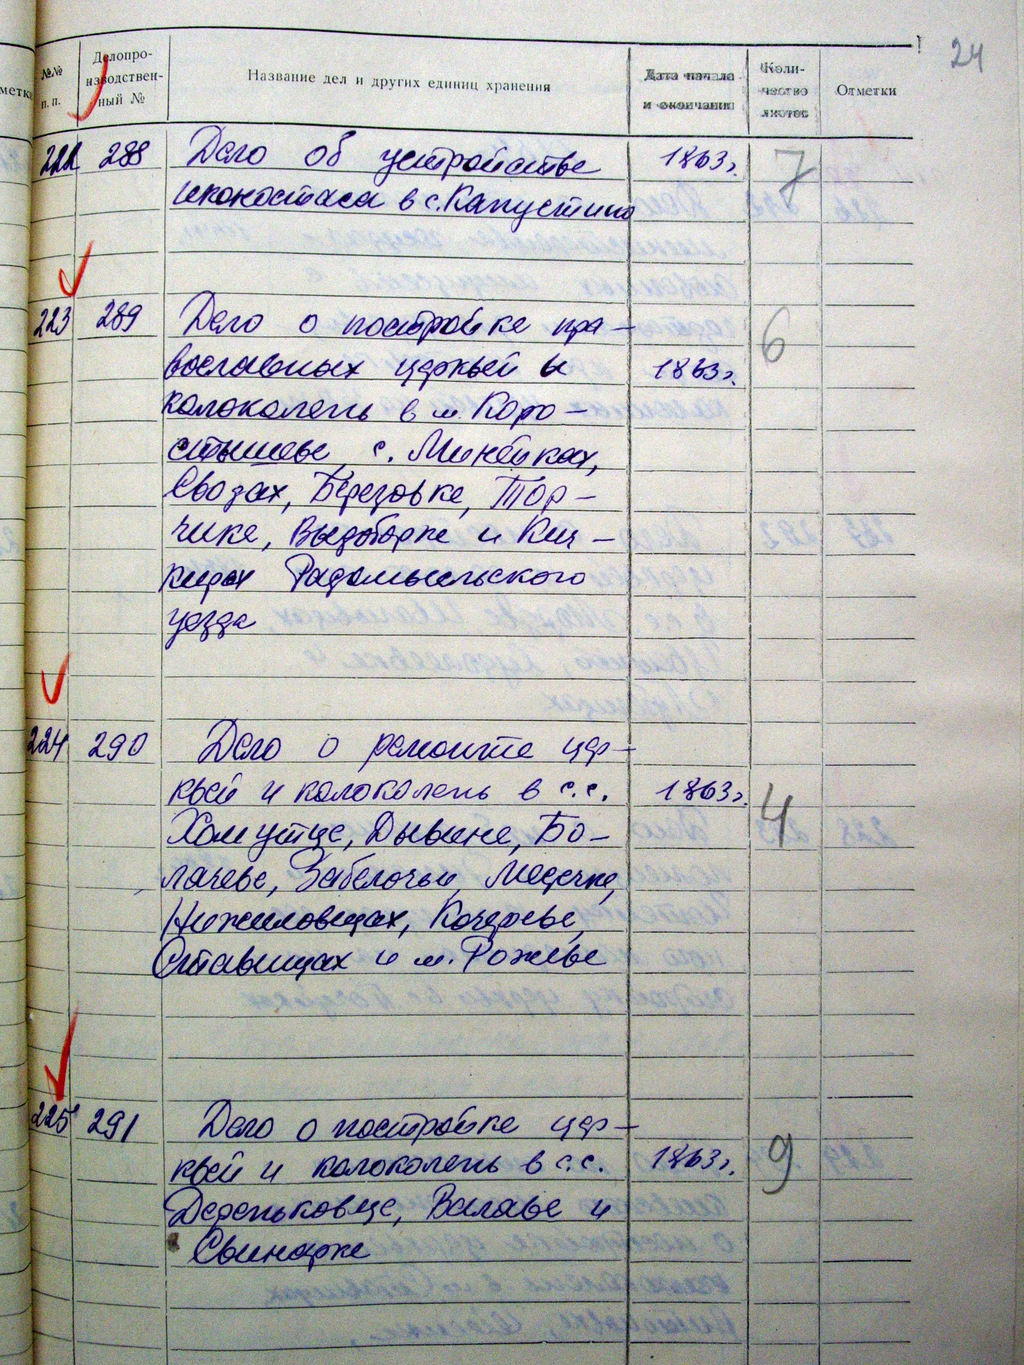 24
№№ п. п.
Делопроизводствен-ный №
Название дел и других единиц хранения
Дата начала и окончания
Коли-чество листов
Отметки
222 288 Дело об устройстве 1863г. 7
иконостаса в с. Капустино
223 289 Дело о постройке пра- 6
вославных церквей и 1863г.
колоколень в м. Коро-
стышеве, с. Минейках,
Сводах, Березовке, Тор-
чике, Выдоборке и Кич-
кирах Радомысльского
уезда
224 290 Дело о ремонте цер-
квей и колоколень в с.с. 1863г. 4
Хомутце, Дывине, Бо-
лачеве, Забелочьи, Медечне,
Нежиловщах, Кочерове,
Ставищах и м. Рожеве
225 291 Дело о постройке цер-
квей и колоколень в с.с. 1863г. 9
Дереньковце, Валаве и
Свинарке